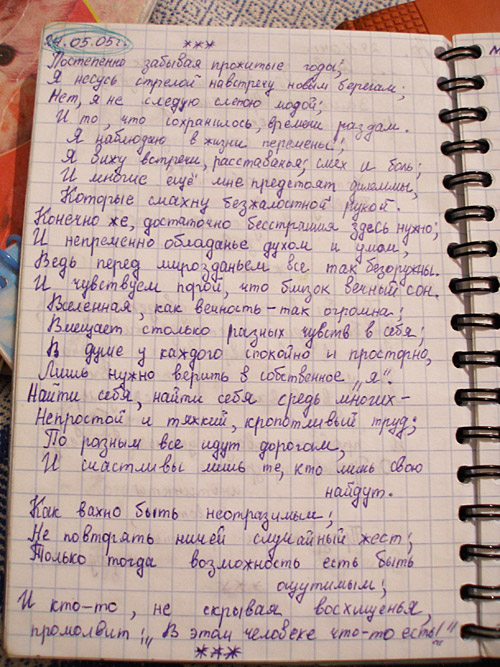 24.05.05г.
***
Постепенно забывая прожитые годы;
Я несусь стрелой навстречу новым берегам;
Нет, я не следую слепою модой;
И то, что сохранилось, времени раздам.
Я наблюдаю в жизни перемены;
Я вижу встречи, расставанья, смех и боль;
И многие ещё мне предстоят дилеммы,
Которые смахну безжалостной рукой.
Конечно же, достаточно бесстрашия здесь нужно;
И непременно обладанье духом и умом,
Ведь перед мирозданьем все так безоружны.
И чувствуем порой, что близок вечный сон.
Вселенная, как вечность - так огромна;
Вмещает столько разных чувств в себя;
В душе у каждого спокойно и просторно,
Лишь нужно верить в собственное „я".
Найти себя, найти себя средь многих -
Непростой и тяжкий, кропотливый труд;
По разным все идут дорогам,
И счастливы лишь те, кто лишь свою
найдут.
Как важно быть неотразимым;
Не повторять ничей случайный жест;
Только тогда возможность есть быть
ощутимым;
И кто-то, не скрывая восхищенья,
промолвит: „В этом человеке что-то есть!"
***